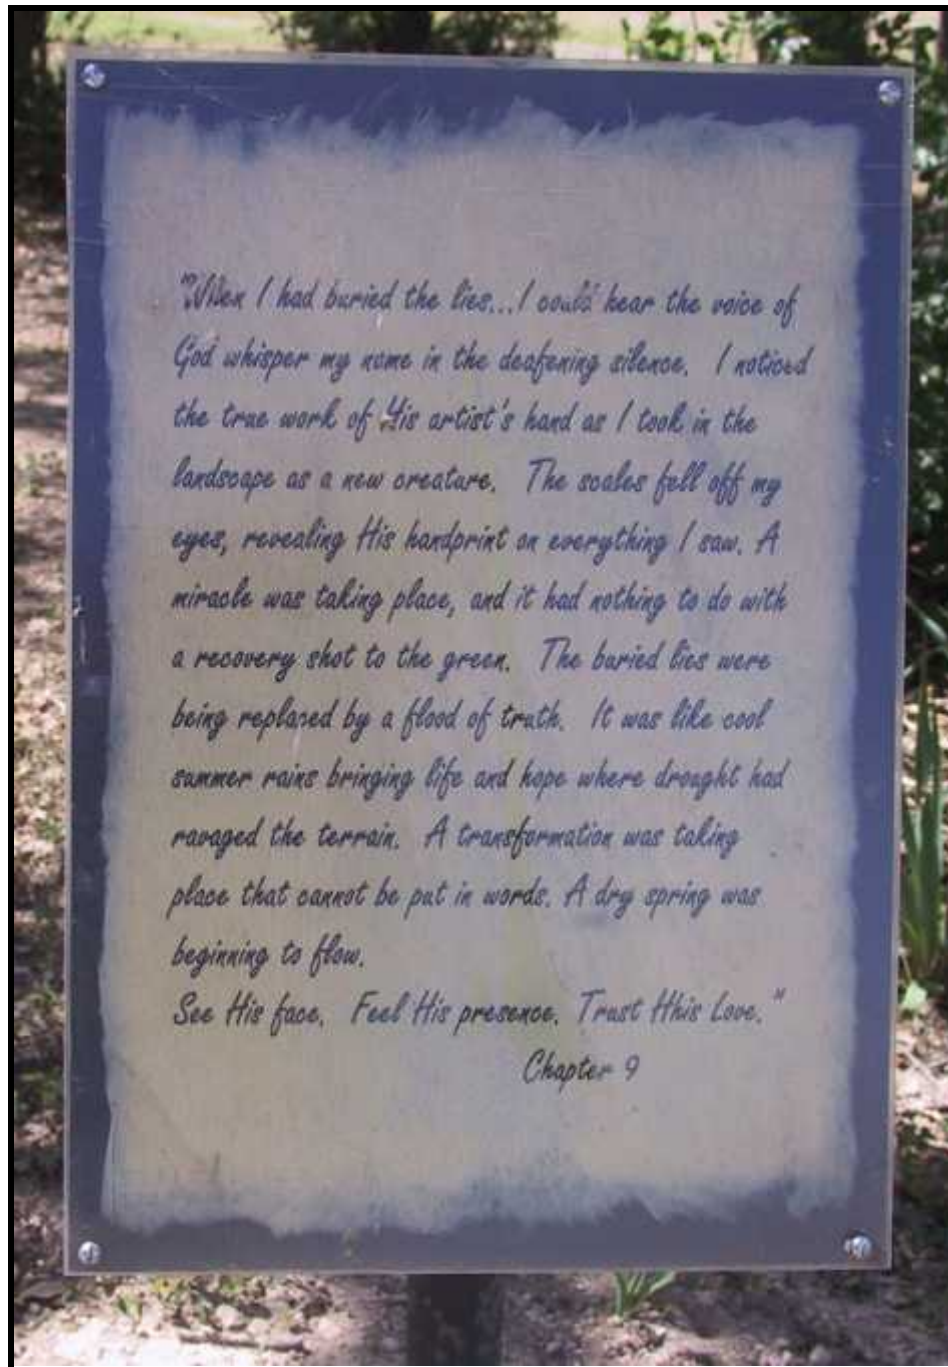 "When I had buried the lies...I could hear the voice of
God whisper my name in the deafening silence. I noticed
the true work of His artist's hand as I took in the
landscape as a new creature. The scales fell off my
eyes, revealing His handprint on everything I saw. A
miracle was taking place, and it had nothing to do with
a recovery shot to the green. The buried lies were
being replaced by a flood of truth. It was like cool
summer rains bringing life and hope where drought had
ravaged the terrain. A transformation was taking
place that cannot be put in words. A dry spring was
beginning to flow.
See His face. Feel His presence. Trust Hhis Love."
Chapter 9